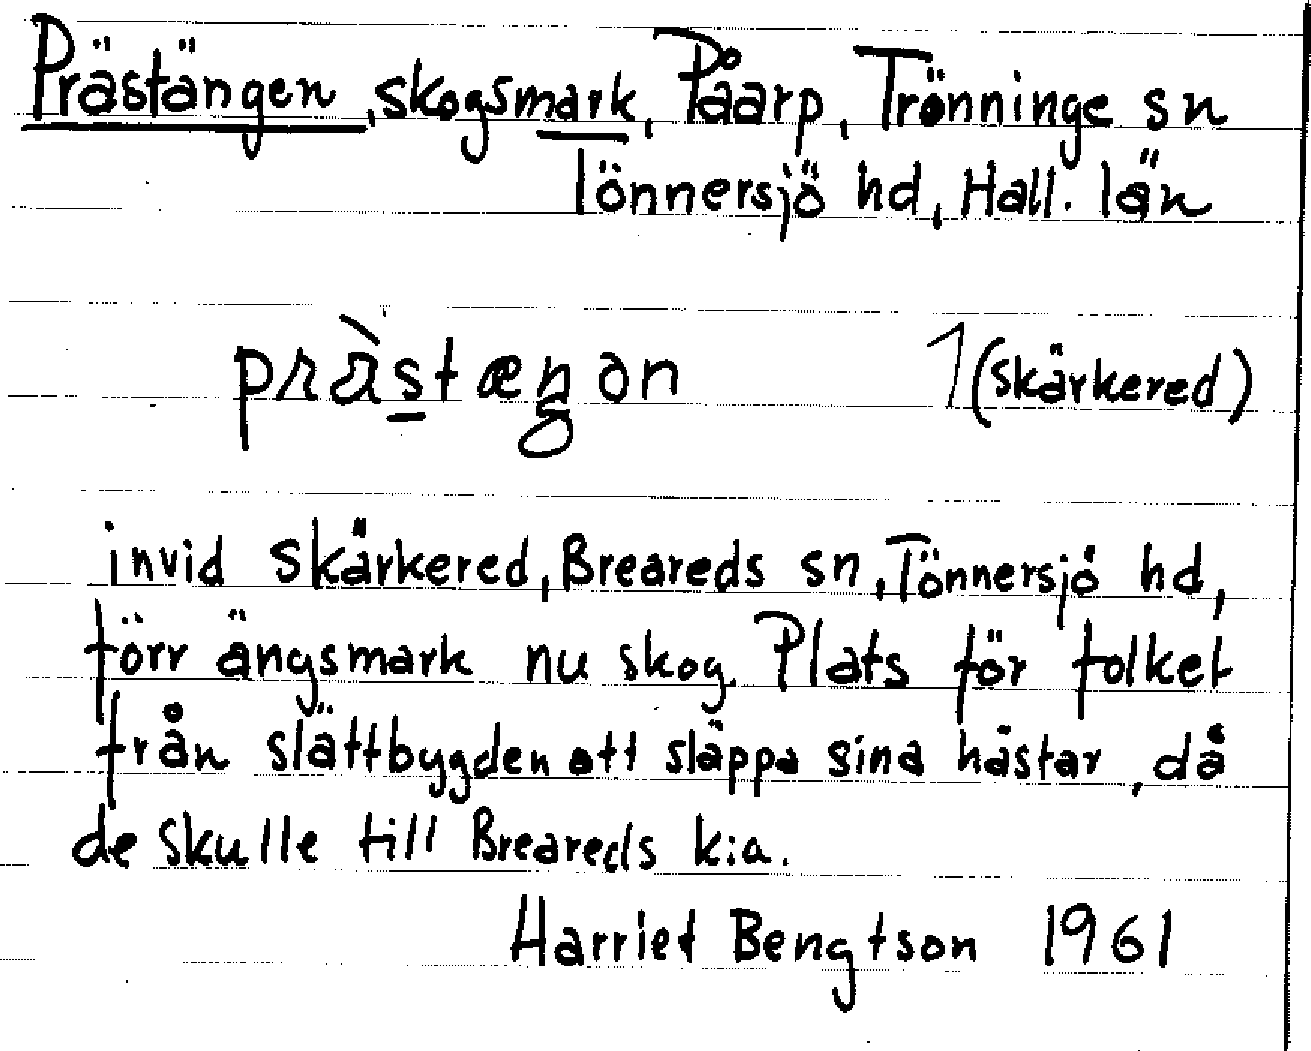 Prästängen, skogsmark, Påarp, Trönninge sn
Tönnersjö hd, Hall. län
prä̀stæŋən 1 (Skärkered)
invid Skärkered, Breareds sn, Tönnersjö hd,
förr ängsmark nu skog. Plats för folket
från slättbygden att släppa sina hästar, då
de skulle till Breareds k:a.
Harriet Bengtson 1961